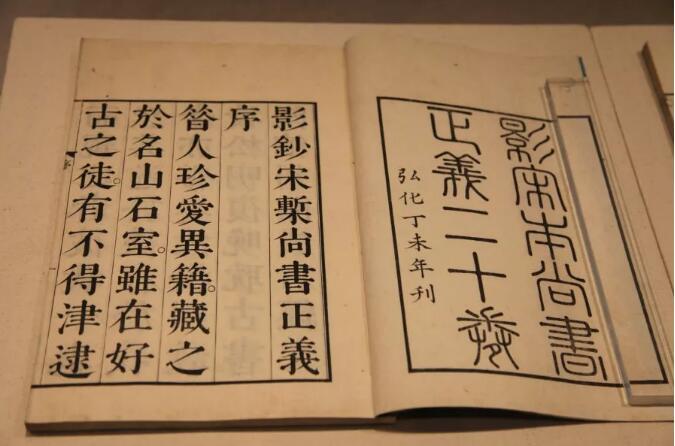 影宋本尚書
正義二十卷
弘化丁未年刊
影鈔宋槧尚書正義
序
昝人珍愛異籍。藏之
於名山石室。雖在好
古之徒。有不得津逮